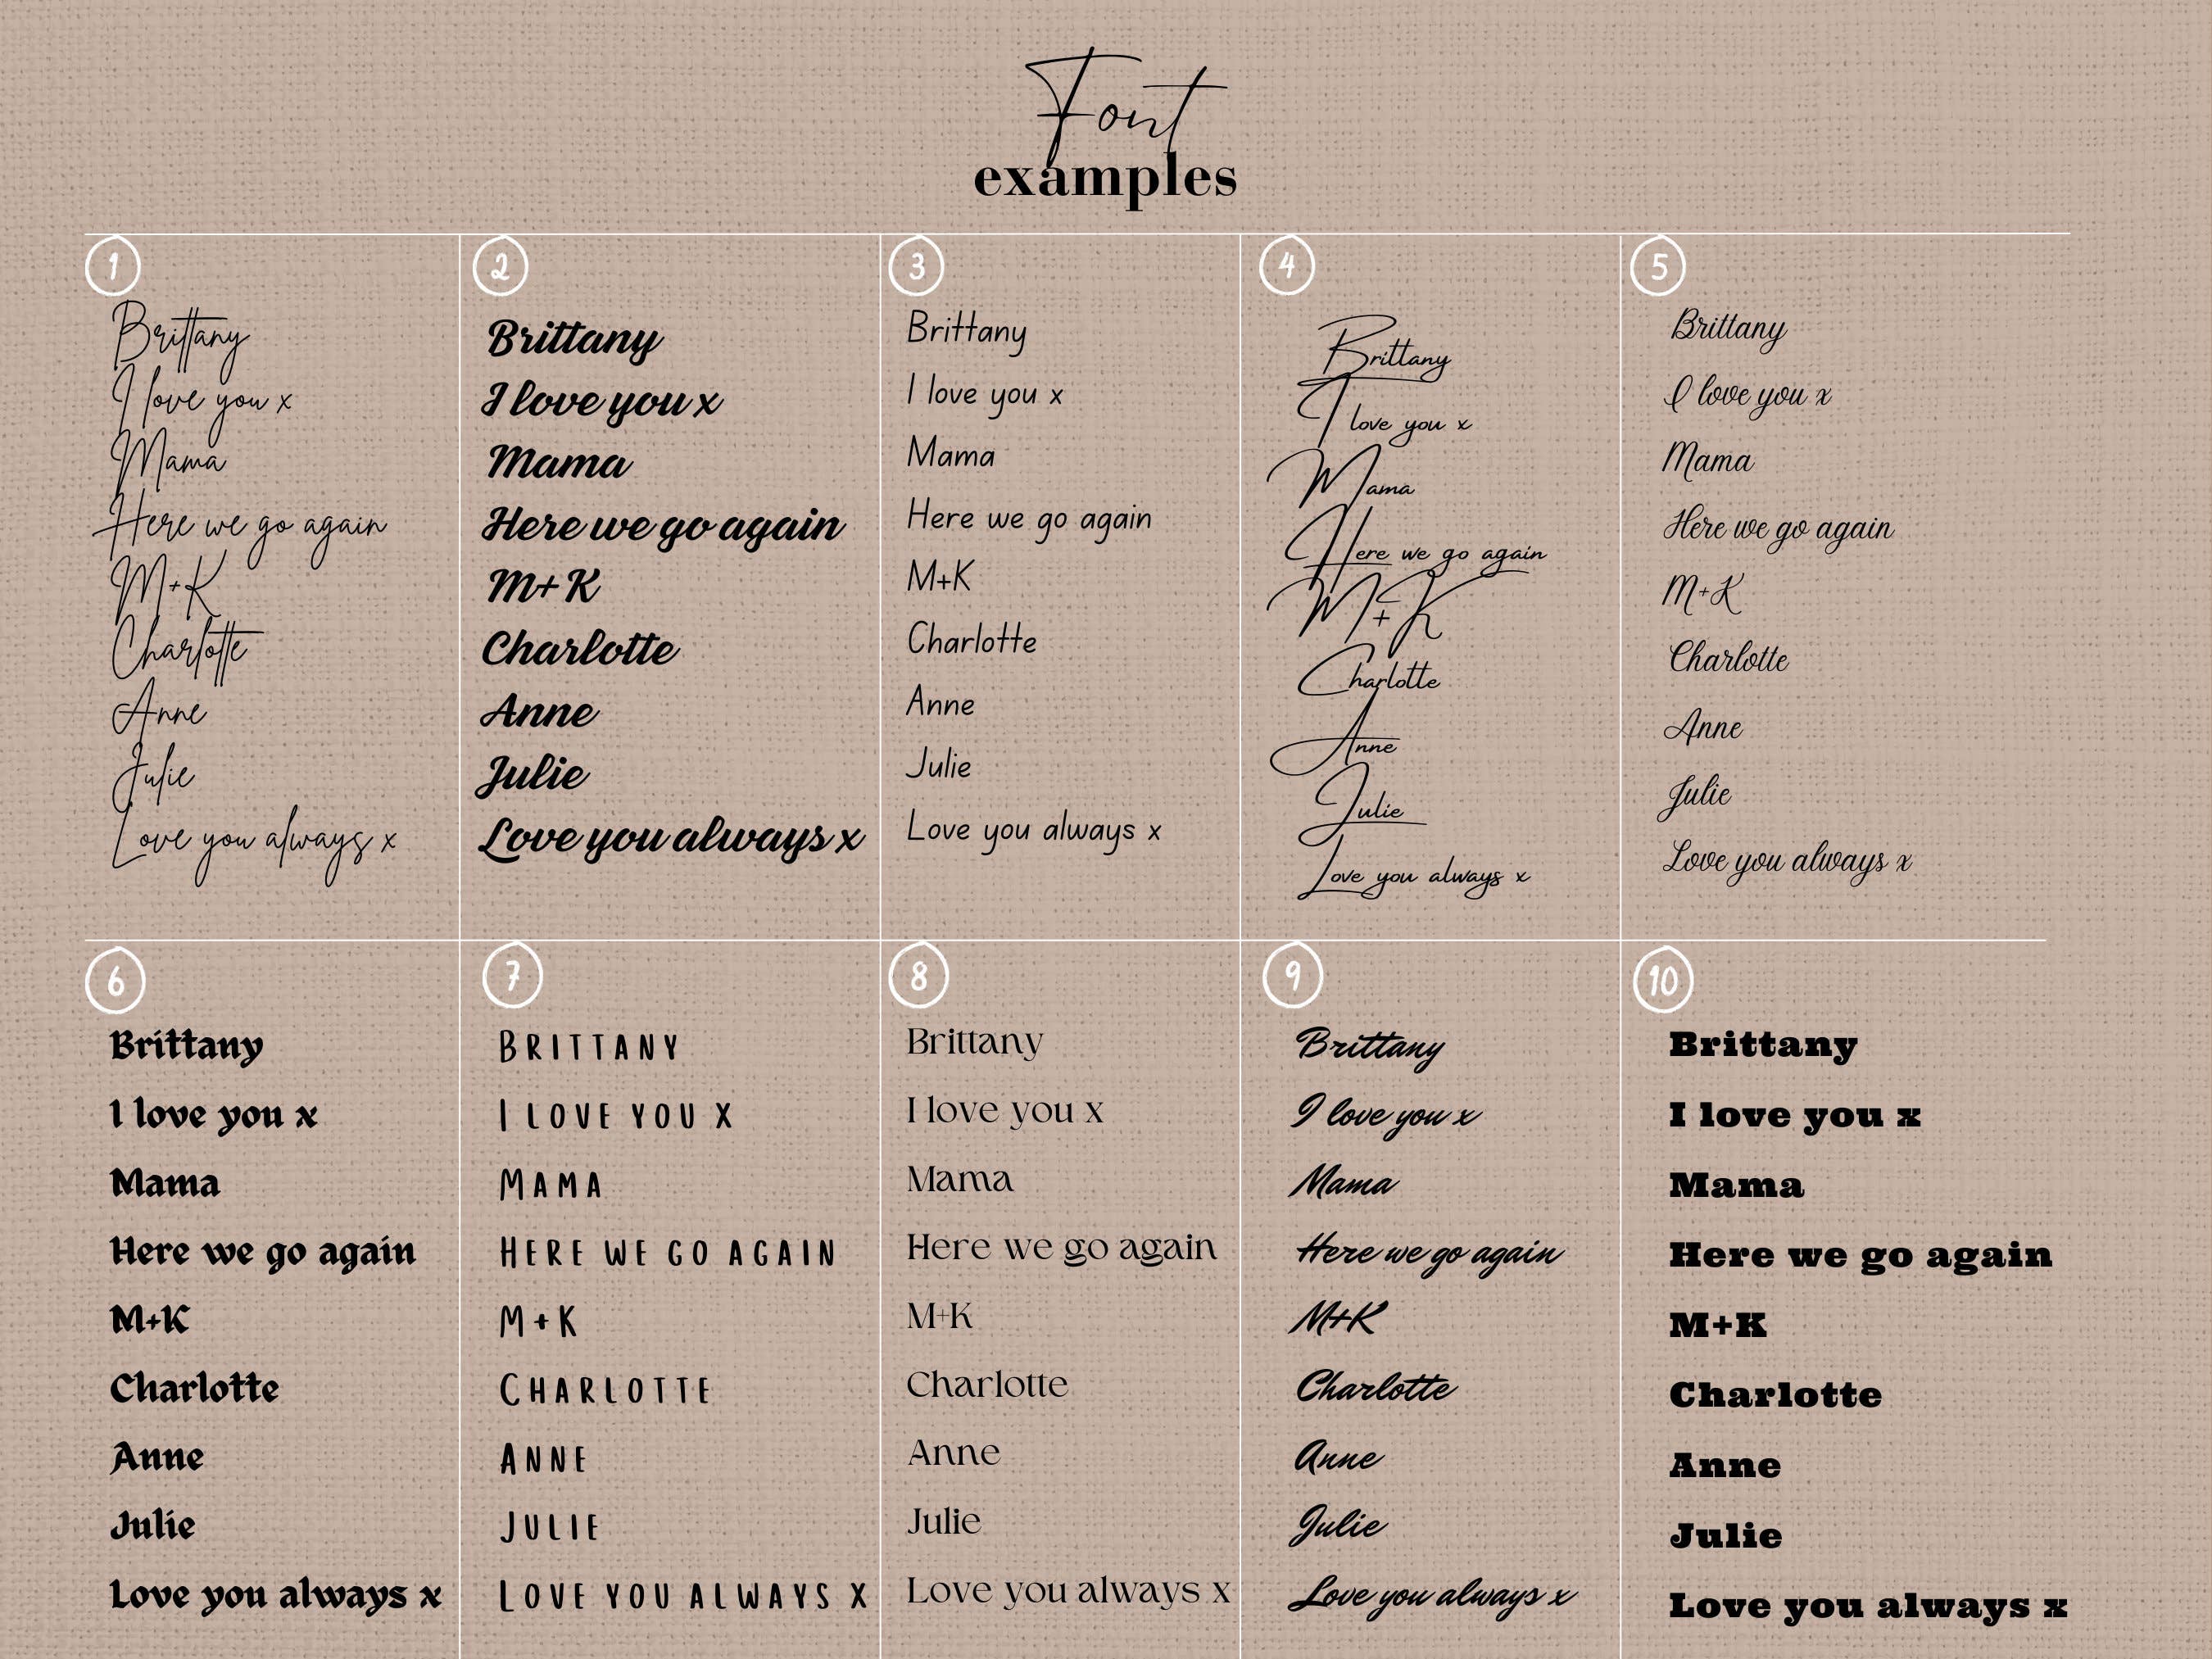 Font
examples
1
Brittany
I love you x
Mama
Here we go again
M+K
Charlotte
Anne
Julie
Love you always x
2
Brittany
I love you x
Mama
Here we go again
M+K
Charlotte
Anne
Julie
Love you always x
3
Brittany
I love you x
Mama
Here we go again
M+K
Charlotte
Anne
Julie
Love you always x
4
Brittany
I love you x
Mama
Here we go again
M+K
Charlotte
Anne
Julie
Love you always x
5
Brittany
I love you x
Mama
Here we go again
M+K
Charlotte
Anne
Julie
Love you always x
6
Brittany
I love you x
Mama
Here we go again
M+K
Charlotte
Anne
Julie
Love you always x
7
BRITTANY
I LOVE YOU X
MAMA
HERE WE GO AGAIN
M+K
CHARLOTTE
ANNE
JULIE
LOVE YOU ALWAYS X
8
Brittany
I love you x
Mama
Here we go again
M+K
Charlotte
Anne
Julie
Love you always x
9
Brittany
I love you x
Mama
Here we go again
M+K
Charlotte
Anne
Julie
Love you always x
10
Brittany
I love you x
Mama
Here we go again
M+K
Charlotte
Anne
Julie
Love you always x